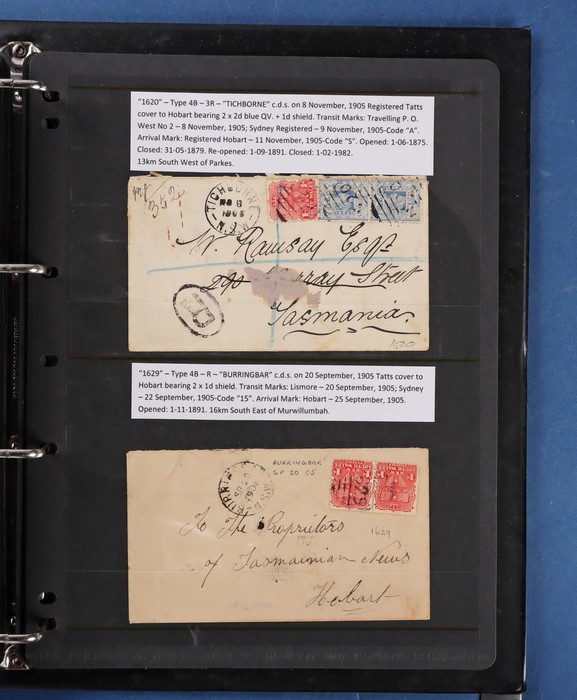 “1620” – Type 4B – 3R – “TICHBORNE” c.d.s. on 8 November, 1905 Registered Tatts
cover to Hobart bearing 2 x 2d blue QV. + 1d shield. Transit Marks: Travelling P. O.
West No 2 – 8 November, 1905; Sydney Registered – 9 November, 1905-Code “A”.
Arrival Mark: Registered Hobart – 11 November, 1905-Code “S”. Opened: 1-06-1875.
Closed: 31-05-1879. Re-opened: 1-09-1891. Closed: 1-02-1982.
13km South West of Parkes.
TICHBORNE
N.S.W
R
W. Ramsay Esqr
Street
Tasmania.
1620
“1629” – Type 4B – R – “BURRINGBAR” c.d.s. on 20 September, 1905 Tatts cover to
Hobart bearing 2 x 1d shield. Transit Marks: Lismore – 20 September, 1905; Sydney
– 22 September, 1905-Code “15”. Arrival Mark: Hobart – 25 September, 1905.
Opened: 1-11-1891. 16km South East of Murwillumbah.
BURRINGBAR
SP 20 05
1629
To The Proprietors
of Tasmainian News
Hobart